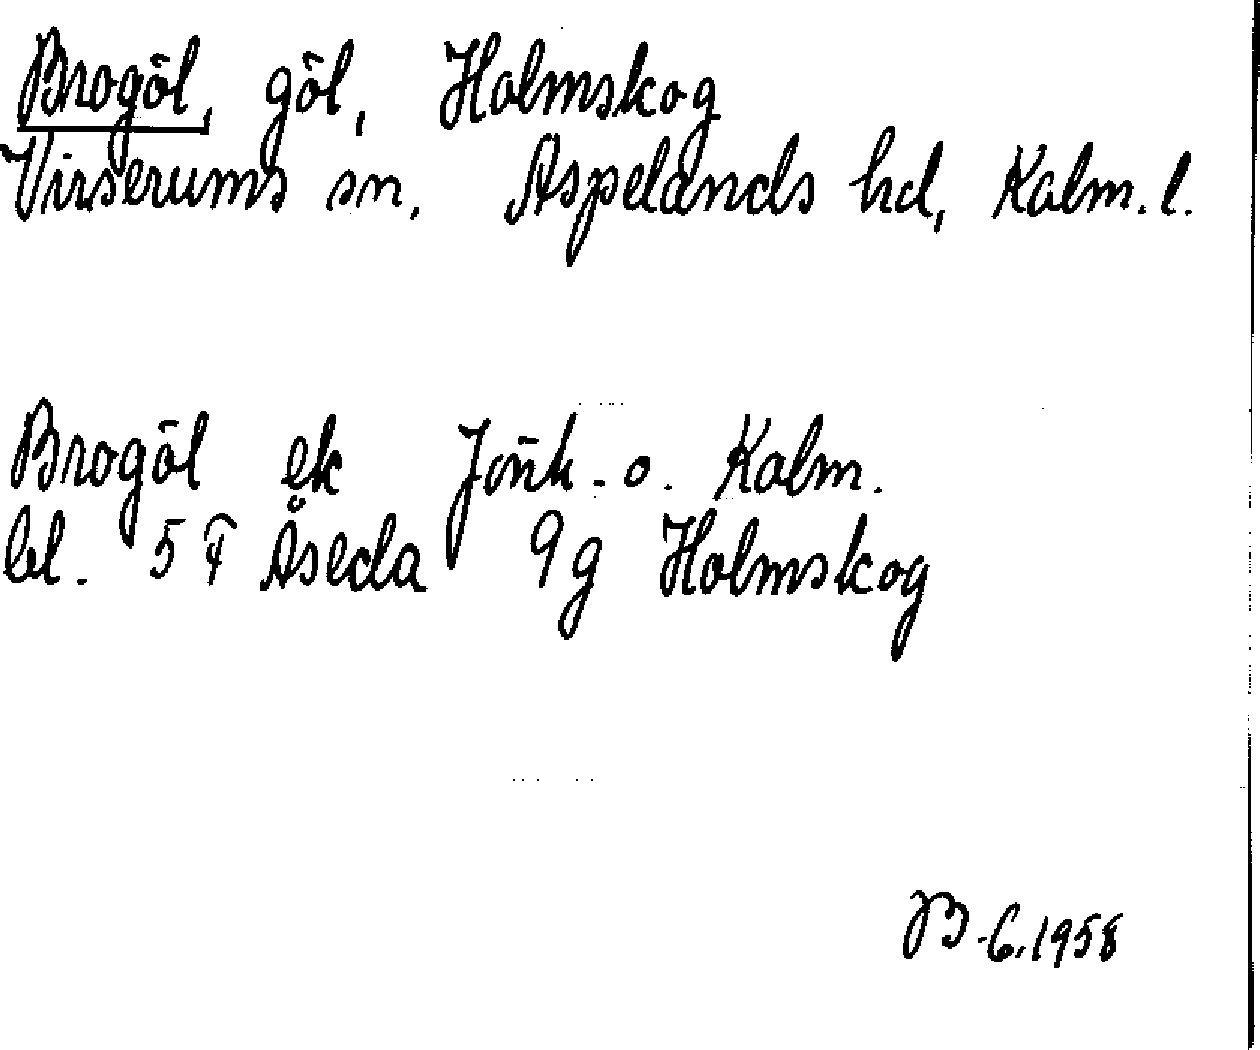 Brogöl, göl, Holmskog
Virserums sn, Aspelands hd, Kalm. l.
Brogöl ek Jönk. o. Kalm.
bl. 5 F Åseda 9g Holmskog
1958